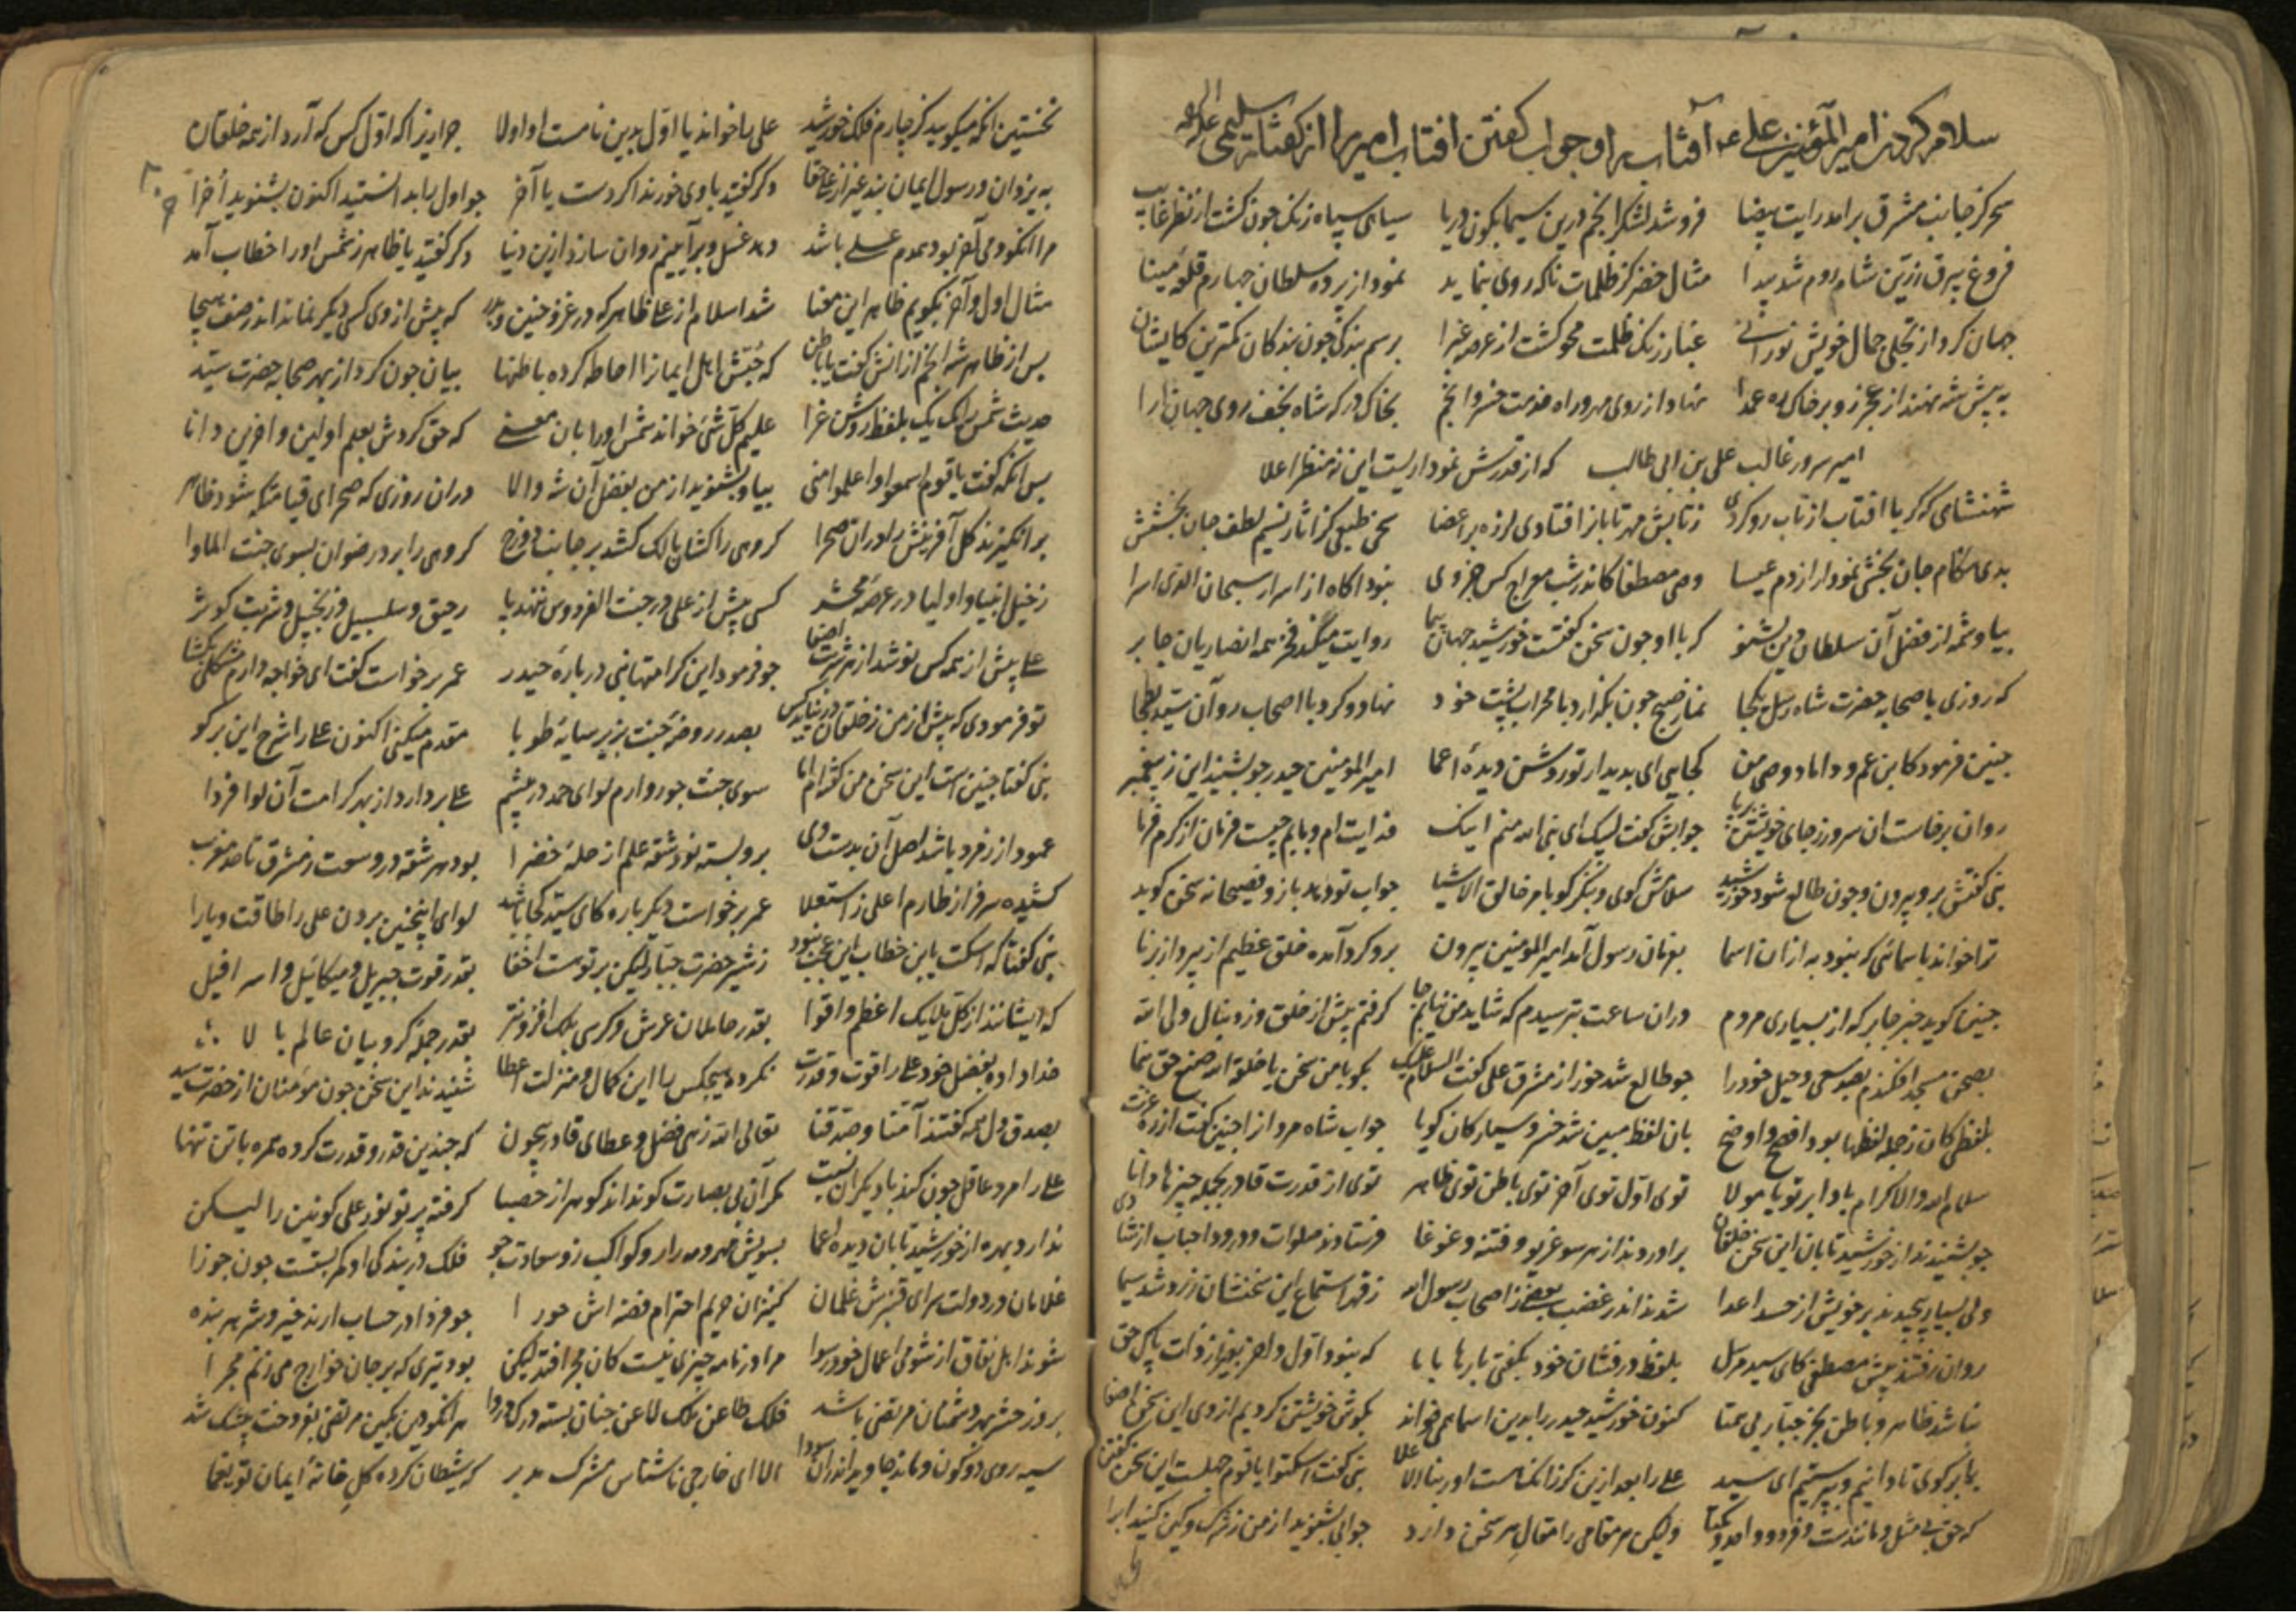 سلام کردن امیرالمؤمنین علی ع آفتاب را و جواب گفتن افتاب امیر را از گفتار سلیمی علیه الرحمه
سحر کز جانب مشرق برامد رایت بیضا فرو شد لشکر انجم درین سیمابگون دریا سپاهی سپاه زنگ چون گشت از نظر غایب
فروغ بیرق زرین شاه روم شد پیدا مثال خضر کز ظلمات ناگه روی بنماید نمود از پرده سلطان چهارم قلعه مینا
جهان کرد از تجلی جمال خویش نورانی غبار زنگ ظلمت محو گشت از عرصه غبرا برسم بندگی چون بندگان کمترین کایشان
به پیش شه نهند از عجز رو بر خاک ره عمدا نهاد از روی مهر و راه خدمت خسرو انجم بخاک درگه شاه نجف روی جهان ارا
امیر سرور غالب علی بن ابی طالب که از قدرش نموداریست این نه منظر اعلا
شهنشاهی که گر با افتاب از تاب رو کردی ز تابش مهر تابان را فتادی لرزه بر اعضا سخن طبعی کز اثار نسیم لطف جان بخشش
بدی هنگام جان بخشی نمودار از دم عیسا وصی مصطفا کاندر شب معراج کس جز وی نبود اکاه از اسرار سبحان الذی اسرا
بیا و شمه از فضل آن سلطان دین بشنو که با او چون سخن گفتست خورشید جهان پیما روایت میکند فخر همه انصاریان جابر
که روزی با صحابه حضرت شاه رسل یکجا نماز صبح چون بگذارد با محراب پشت خود نهاد و کرد با اصحاب رو آن سید بطحا
چنین فرمود کابن عم و داماد و وصی من کجایی ای بدیدار تو روشن دیده اعما امیرالمومنین حیدر چو بشنید این ز پیغمبر
روان برخاست ان سرور ز جای خویشتن برپا جوابش گفت لبیک ای نبی الله منم اینک فدایت ام و بابم چیست فرمان از کرم فرما
نبی گفتش برو بیرون و چون طالع شود خورشید سلامش گوی و بنگر کو بامر خالق الاشیا جواب تو دهد باز و فصیحانه سخن گوید
ترا خواند باسمائی که نبود به ازان اسما بفرمان رسول آمد امیرالمومنین بیرون برو گرد آمده خلق عظیم از پیر و از برنا
چنین گوید خبر جابر که از بسیاری مردم دران ساعت بترسیدم که شاید من نیابم جا گرفتم پیش از خلق و ز دنبال ولی الله
بصحن مسجد افکندم بصد سعی و حیل خود را چو طالع شد خور از مشرق علی گفت السلام علیک بگو با من سخن یا خلقة الله صنع حق بنما
بلفظی کان ز جمله لفظها بود افصح و اوضح بان لفظ مبین شد خسرو سیارگان گویا جواب شاه مردان را چنین گفت از ره عزت
سلام الله والاکرام بادا بر تو یا مولا توی اول توی آخر توی باطن توی ظاهر توی از قدرت قادر بجمله چیزها دانا
چو بشنیدند از خورشید تابان این سخن خلقان براوردند از هر سو غریو و فتنه و غوغا فرستادند صلوات و درود احباب از شادی
ولی بسیار پیچیدند بر خویش از حسد اعدا شدند اندر غضب بعضی ز اصحاب رسول الله ز قهر استماع این سخنشان زرد شد سیما
روان رفتند پیش مصطفی کای سید مرسل بلفظ درفشان خود بگفتی بارها با ما که نبود اول و اخر بغیر از ذات پاک حق
نباشد ظاهر و باطن بجز جبار بی همتا کنون خورشید حیدر را بدین اسما همی خواند بگوش خویشتن کردیم از وی این سخن اصغا
بما برگوی تا دانیم و بپرستیم ای سید علی را بعد ازین گر زانکه هست او ربنا الاعلا نبی گفت اسکتوا یا قوم جهلست این سخن گفتن
که حق بی مثل و مانندست و فرد و واحد و یکتا ولیکن هر مقامی را مقال هر سخن دارد جوابی بشنوید از من ز شرک و کین کنید ابرا
نخستین انکه میگوید کز چارم فلک خورشید علی را خواند یا اول بدین نامست او اولا چرا زیرا که اول کس که آرد از همه خلقان
به یزدان و رسول ایمان بد غیر از علی حقا دگر گفتید با وی خور ندا کردست یا آخر چو اول را بدانستید اکنون بشنوید اخرا
مرا انکو دمی آخر بود همدم علی باشد دهد غسل و برآییم روان سازد ازین دنیا دگر گفتید یا ظاهر ز شمس او را خطاب آمد
مثال اول و آخر بگویم ظاهر این معنا شد اسلام از علی ظاهر که در غزو حنین و بدر که پیش از وی کسی دیگر نماند اندر صف هیجا
پس از ظاهر شه انجم ازانش گفت یا باطن که حبش اهل ایمانرا احاطه کرده باطنها بیان چون کرد از بهر صحابه حضرت سید
حدیث شمس را یک یک بلفظ روشن غرا علیم کل شئ خواند شمس او را بان معنی که حق کردش بعلم اولین و اخرین دانا
پس انکه گفت یا قوم اسمعوا واعلموا منی بیا و بشنوید از من بفضل آن شه والا دران روزی که صحرای قیامت میشود ظاهر
برانگیزند کل آفرینش را دران صحرا گروهی را کشان مالک کشد بر جانب دوزخ گروهی را برد رضوان بسوی جنت الماوا
ز خیل انبیا و اولیا در عرصه محشر کسی پیش از علی در جنت الفردوس ننهد پا رحیق و سلسبیل و زنجبیل و شربت کوثر
علی پیش از همه کس نوشد از هر شربت اصفا چو فرمود این کرامتها نبی درباره حیدر عمر برخواست گفت ای خواجه دارم مشکلی بگشا
تو فرمودی که پیش از من ز خلقان در نیاید کس بصدر روضه جنت بزیر سایه طوبا مقدم میکنی اکنون علی را شرح این برگو
نبی گفتا چنین است این سخن من گفته‌ام اما سوی جنت چو رو آرم لوای حمد در پیشم علی بردارد از بهر کرامت آن لوا فردا
عمود از زر فرد باشد اصل آن بدست وی برو بسته نود شقه علم از حله خضرا بود هر شقه در وسعت ز مشرق تا حد مغرب
کشیده سر فراز طارم اعلی ز استعلا عمر برخواست دیگر باره کای سید کجا باشد لوای اینچنین بردن علی را طاقت و یارا
نبی گفتا که اسکت یابن خطاب این عجب نبود ز شیر حضرت جبار لیکن بر توست اخفا بقدر قوت جبریل و میکائیل و اسرافیل
که ایشانند از کل ملایک اعظم و اقوا بقدر حاملان عرش و کرسی بلک افزونتر بقدر جمله کروبیان عالم بالا
خدا داده بفضل خود علی را قوت و قدرت نکرده هیچکس را این کمال و منزلت اعطا شنیدند این سخن چون مؤمنان از حضرت سید
بصدق دل همه گفتند آمنا و صدقنا تعالی الله زهی فضل و عطای قادر بیچون که چندین قدر و قدرت کرده همره با تن تنها
علی را مرد عاقل چون کند با دیگران نسبت مگر آن بی بصارت کو نداند گوهر از حصبا گرفته پرتو نور علی کونین را لیکن
ندارد بهره از خورشید تابان دیده اعما بسویش مهر و مه دارد و کواکب زو سعادت جو فلک در بندگی او کمر بستست چون جوزا
غلامان در دولت سرای قنبرش غلمان کنیزان حریم احترام فضه‌اش حورا چو فردا در حساب ارند خیر و شر هر بنده
شوند اهل نفاق از شومی اعمال خود رسوا مرا در نامه چیزی نیست کان مجرا فتد لیکن بود تیری که بر جان خوارج می زنم مجرا
بروز حشر بهر دشمنان مرتضی باشد فلک طاعن ملک لاعن جنان بسته درک در وا هر انکو دین بکین مرتضی بفروخت بیشک شد
سیه روی دو کون و ماند جاوید اندران سودا الا ای خارجی ناشناس مشرک مدبر که شیطان کرده کل خانه ایمان تو یغما